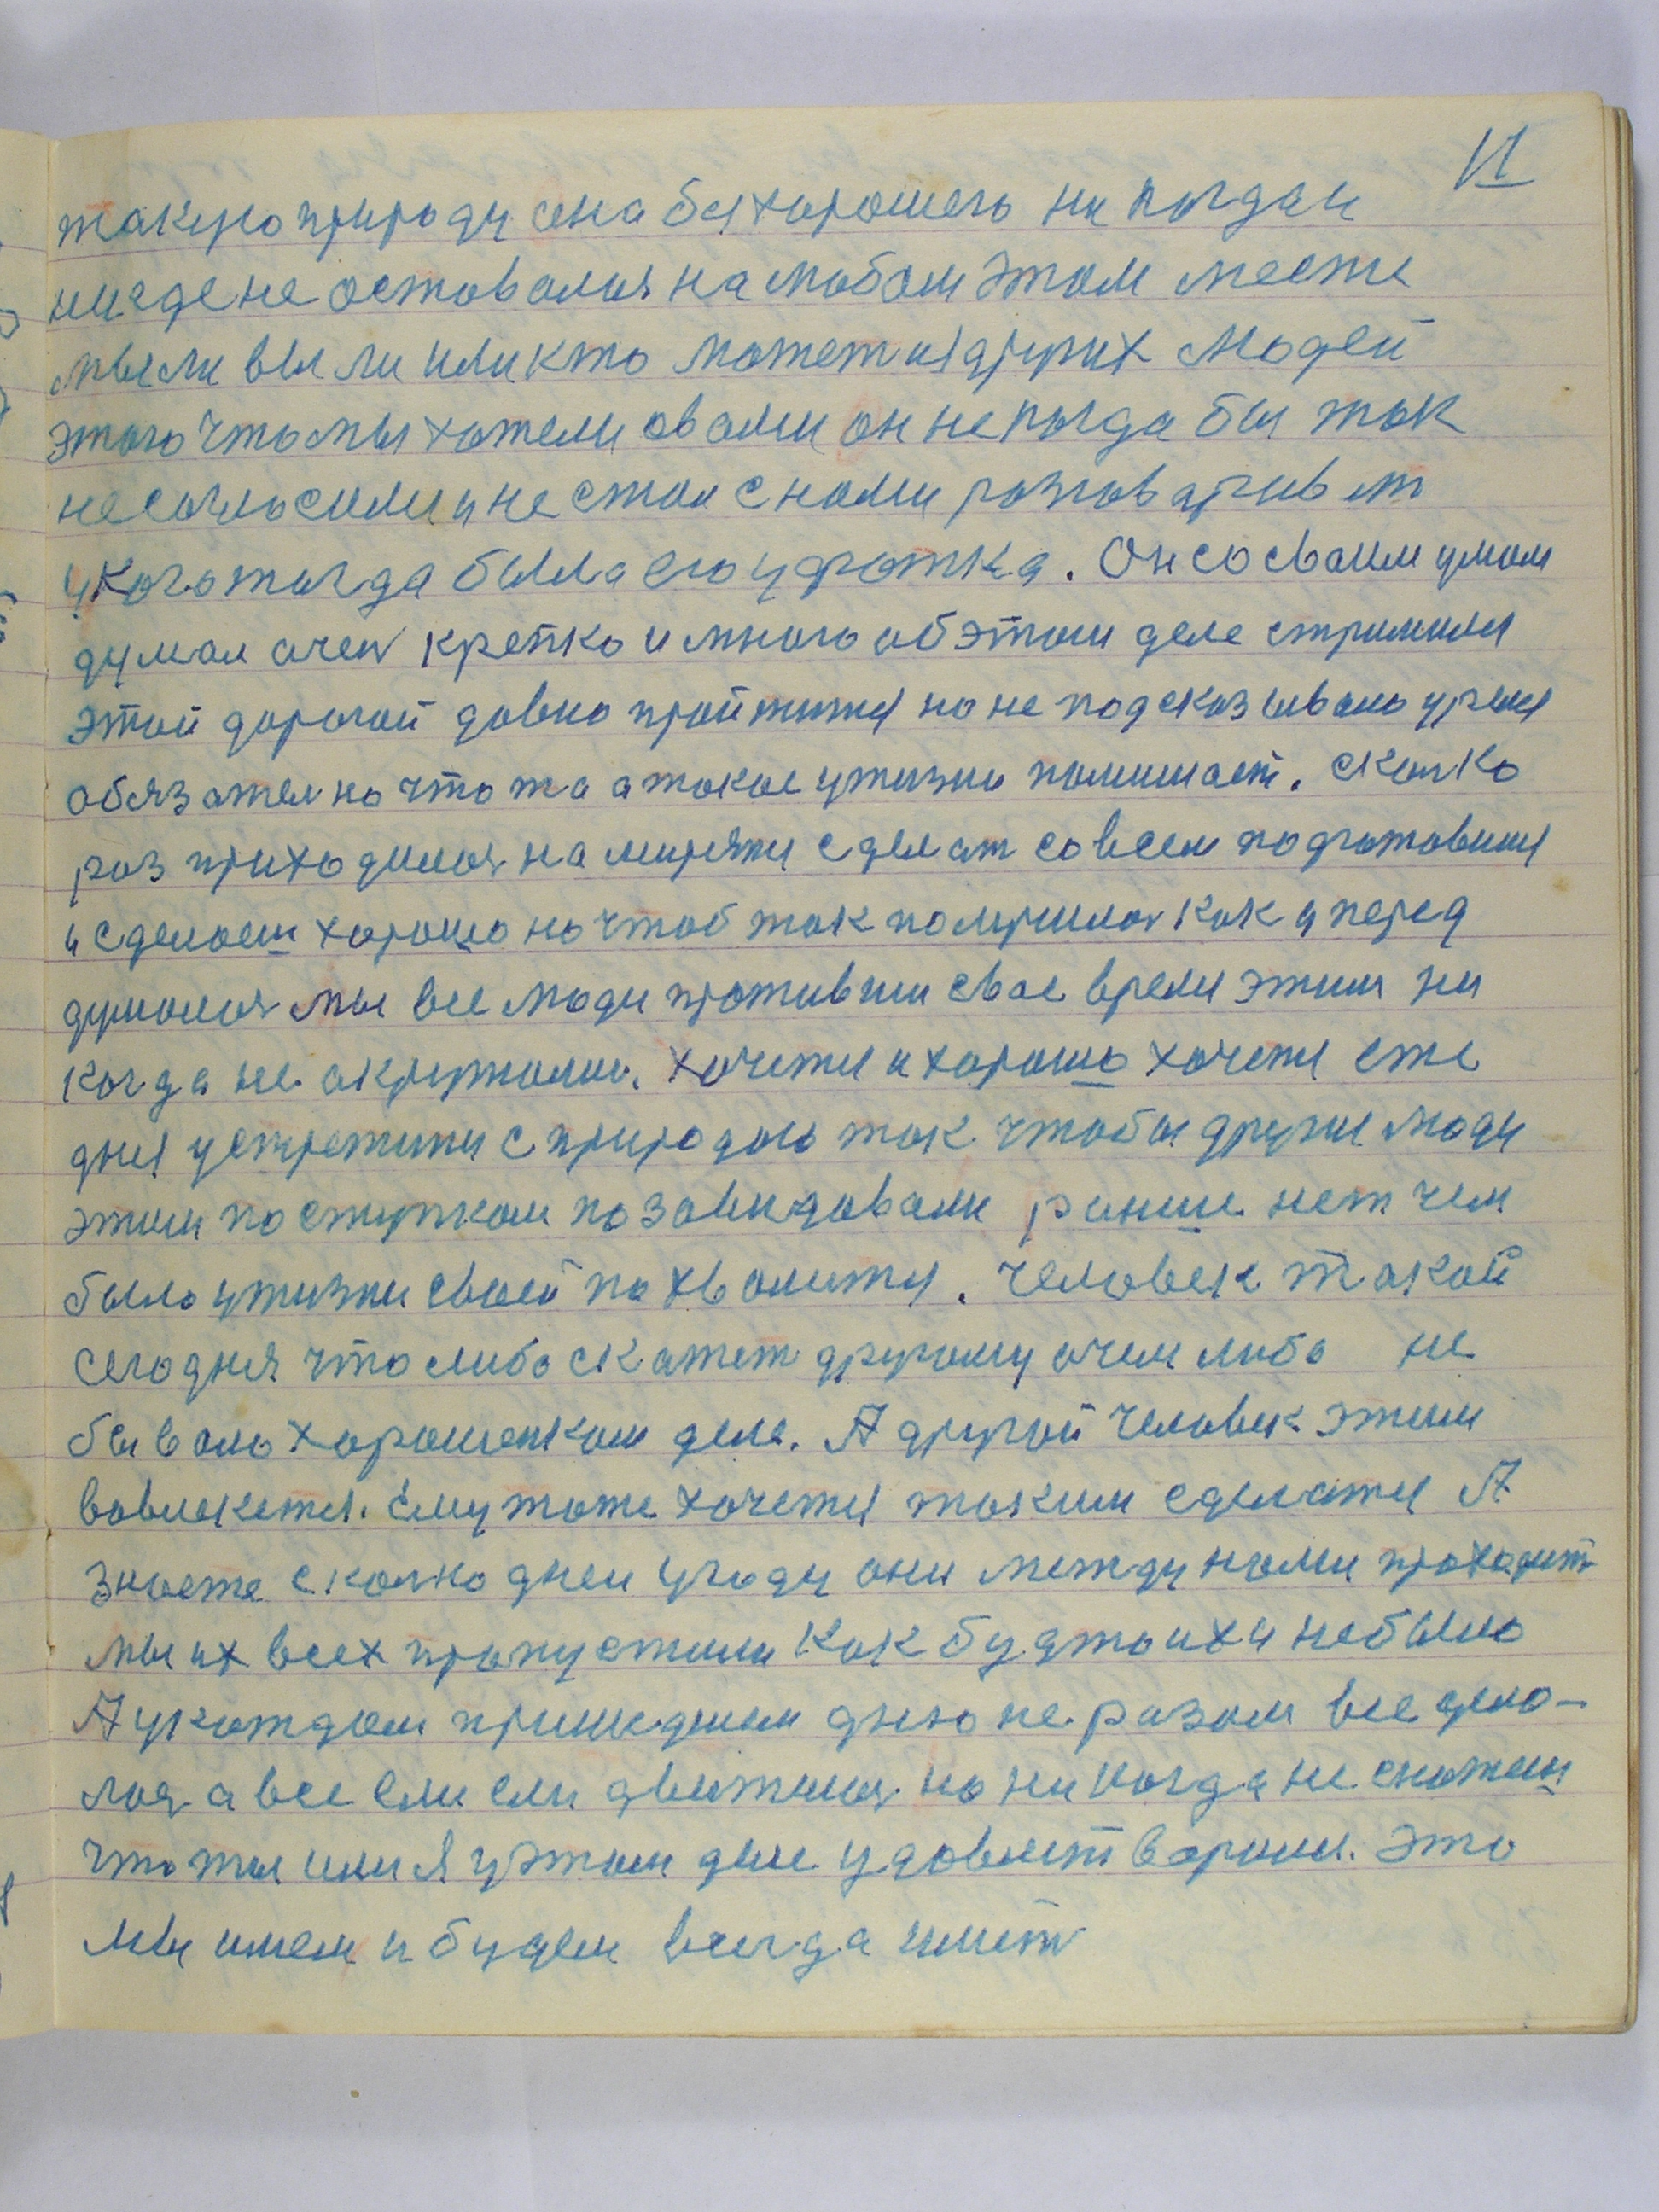 11
такую природу она бы хорошего ни когда и
ниегде не оставался на любом этом месте
мы ли вы ли или кто может из других людей
этого что мы хотели с вами он не когда бы так
не согласился и не стал с нами разговариват
у кого тогда была его удержка. Он со своим умом
думал очен крепко и много об этом деле стримился
этой дорогой давно пройтится но не подсказывало время
обязателно что то а такое у жизни помишает. сколко
раз приходилося намирятся сделат совсем подготовился
и сделаеш хорошо но что б так помрилося как и перед
думалося мы все люди проживши свое время этим ни
когда не окружалис. хочется и хорошо хочется єте
дня устретится с природою так чтобы други люди
этим поступком позавидовали ранише нет чем
было у жизни своей похвалится. Человек такой
сегодня что либо скажет другому очем либо не
бывало хорошеньком деле. А другой человек этим
вовлекется. Ему тоже хочется таким сделатся А
знаете сколко дней у году они между нами проходит
мы их всех пропустили как будто их и не было
А у каждом пришедшем дню не разом все дела-
лося а все еле еле движился но ни когда не скажеш
что ты или я у этом деле удовлетворился. Это
мы имем и будем всегда имет